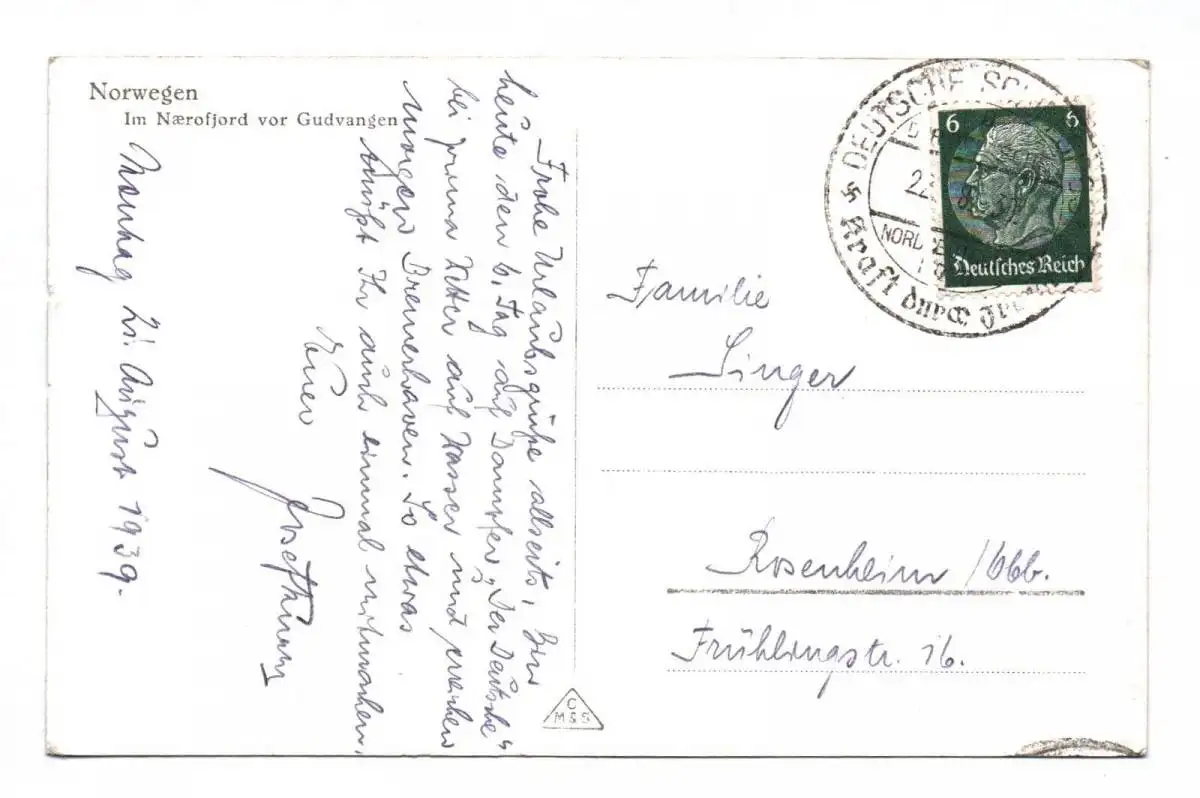 Norwegen
Im Nærofjord vor Gudvangen
Montag 21. August 1939.
Frohe Urlaubsgrüße allseits, bin
heute den 6. Tag auf Dampfer „Der Deutsche“
bei prima Wetter auf Wasser und erreichen
morgen Bremerhaven. So etwas
müßt Ihr auch einmal mitmachen,
Euer
C
M&S
DEUTSCHE
Kraft durch
NORD
6
6
Deutsches Reich
Familie
Singer
Rosenheim /Obb.
Frühlingstr. 16.